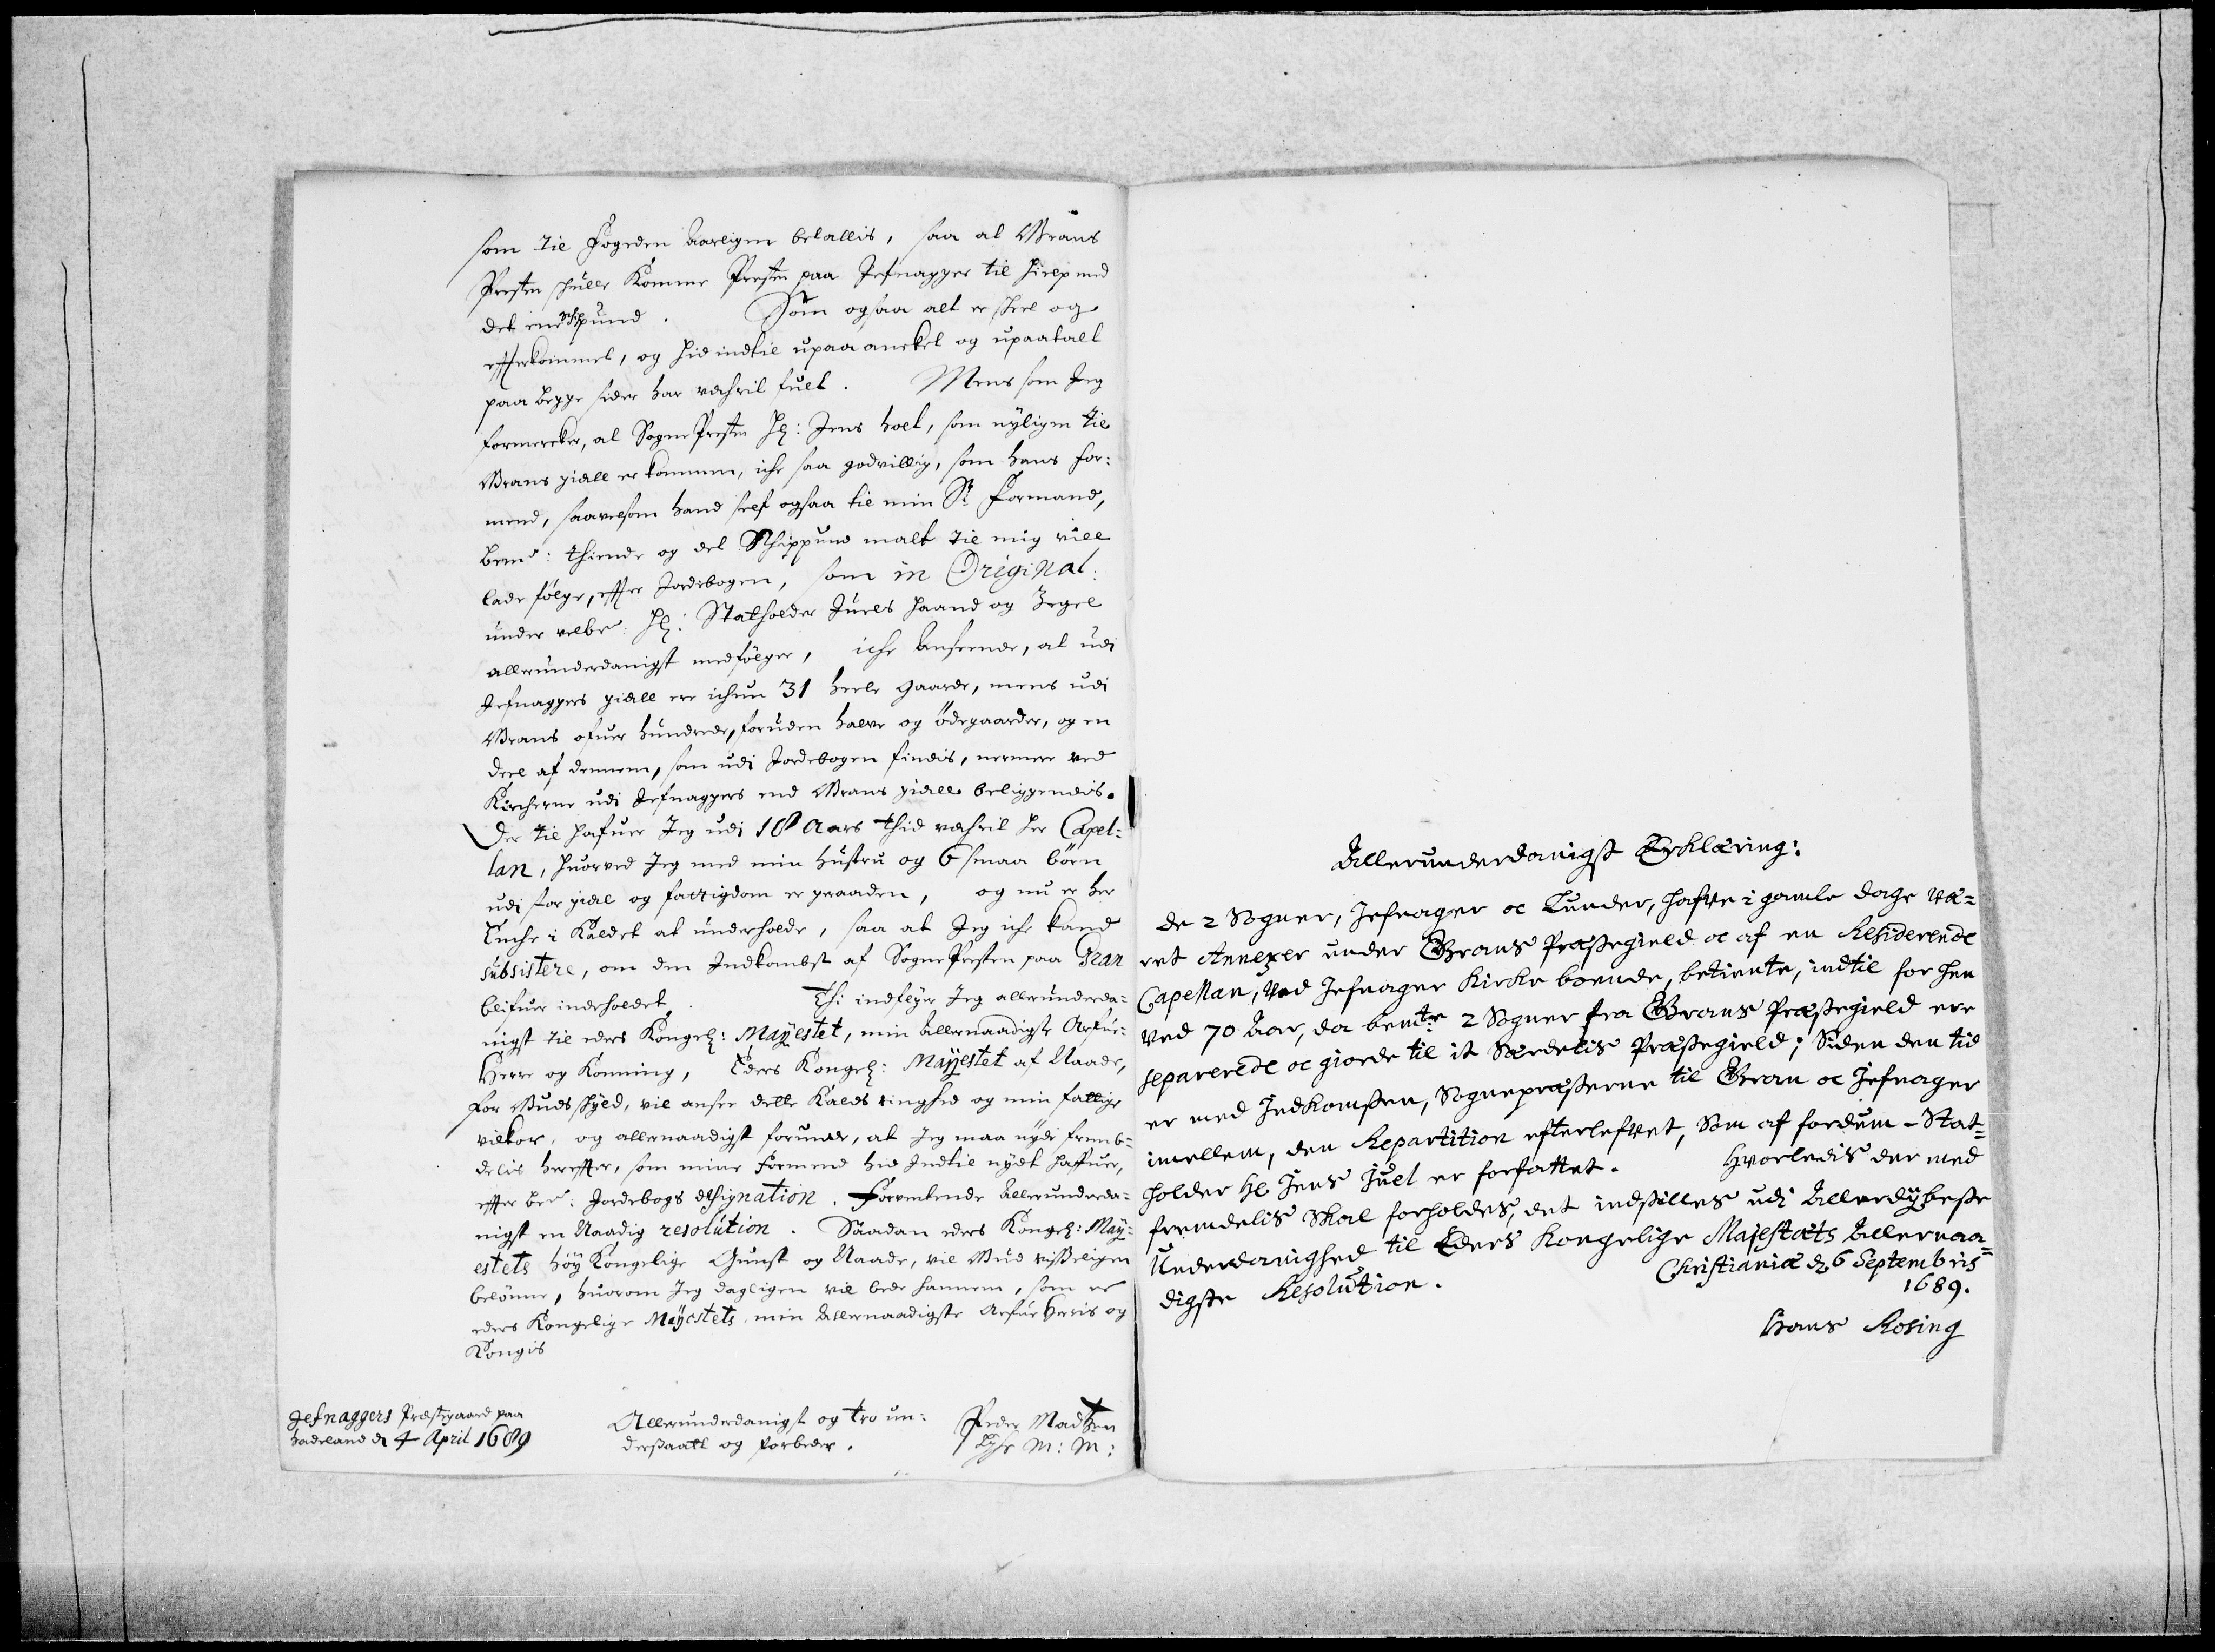 som til Fogeden Aarligen betallis, saa at Grans
Presten skulle komme Presten paa Jefnagger til hielp med
det ene Skippund. Som ogsaa alt er skeet og
efterkommet, og hid indtil upaaancket og upaatalt
paa begge sider har verhrit fult. Mens som Jeg
formercker, at Sogne Presten Hr: Jens Hoel, som nyligen til
Grans gield er kommen, iche saa godvillig, som hans for:
mend, saavelsom hand self ogsaa til min Sl: Formand,
bemt: thiende og det Skippund malt til mig vill
lade følge, efter Jordebogen, som in Original:
under velbr: Hr: Statholder Juels haand og Zegel
allerunderdanigst medfølger, iche Anseende, at udi
Jefnaggers gield ere ichun 31 heele gaarde, mens udi
Grans ofuer hundrede, foruden halve og ødegaarder, og en
deel af dennem, som udi Jordebogen findis, nermere ved
Kircherne udi Jefnaggers end Grans gield beliggendes.
Der til hafuer Jeg udi 18 Aars thid verhrit her Capel=
lan, huorved Jeg med min hustru og 6 smaa børn
udi stor gield og fattigdom er geraaden, og nu er her
Enche i Kaldet at underholde, saa at Jeg iche kand
subsistere, om den Indkombst af Sogne Presten paa Gran
blifuer inderholdet. Thi indflyer Jeg allerunderda=
nigst til eders Kongel: Mayestet, min allernaadigste Arfue=
Herre og Konning, Eders Kongel: Mayestet af Naade,
for Guds skyld, vil ansee dette Kalds ringhed og min fattige
vilkor, og allernaadigst forunde, at Jeg maa nyde fremb=
delis herefter, som mine Formend hid Indtil nydt haffuer,
efter ber: Jordebogs designation. Forventende Allerunderda=
nigst en Naadig resolution. Saadan eders Kongel: May=
estets høy Kongelige Gunst og Naade, vil Gud visseligen
belønne, huorom Jeg dagligen vil bede hannem, som er
eders Kongelige Mayestets, min Allernaadigste Arfue Herris og
Kongis
Jefnaggers Prestegaard paa
Hadeland d 4 April 1689
Allerunderdanigst og tro un:
dersaatt og forbeder.
Peder Madtzen
Lyhe M: M:
Allerunderdanigst Erklæring:
de 2 Sogner, Jefnager oc Lunder, hafve i gamle dage væ=
ret Annexer under Grans Præstegield oc af en Residerende
Capellan, Ved Jefnager Kirche boende, betiente, indtil for hen
Ved 70 Aar, da bemte 2 Sogner fra Grans Præstegield ere
separerede oc giorde til it Særdelis Præstegield; Siden den tid
er med Indkomsten, Sognepræsterne til Gran oc Jefnager
imellem, den Repartition efterlefvet, Som af fordum - Stat=
holder Hl Jens Juel er forfattet. Hvorledis der med
fremdelis Skal forholdes, det indstilles udi Allerdybeste
Underdanighed til Eders Kongelige Majestæts Allernaa=
digste Resolution. Christianiæ d 6 Septembris
1689.
Hans Rosing